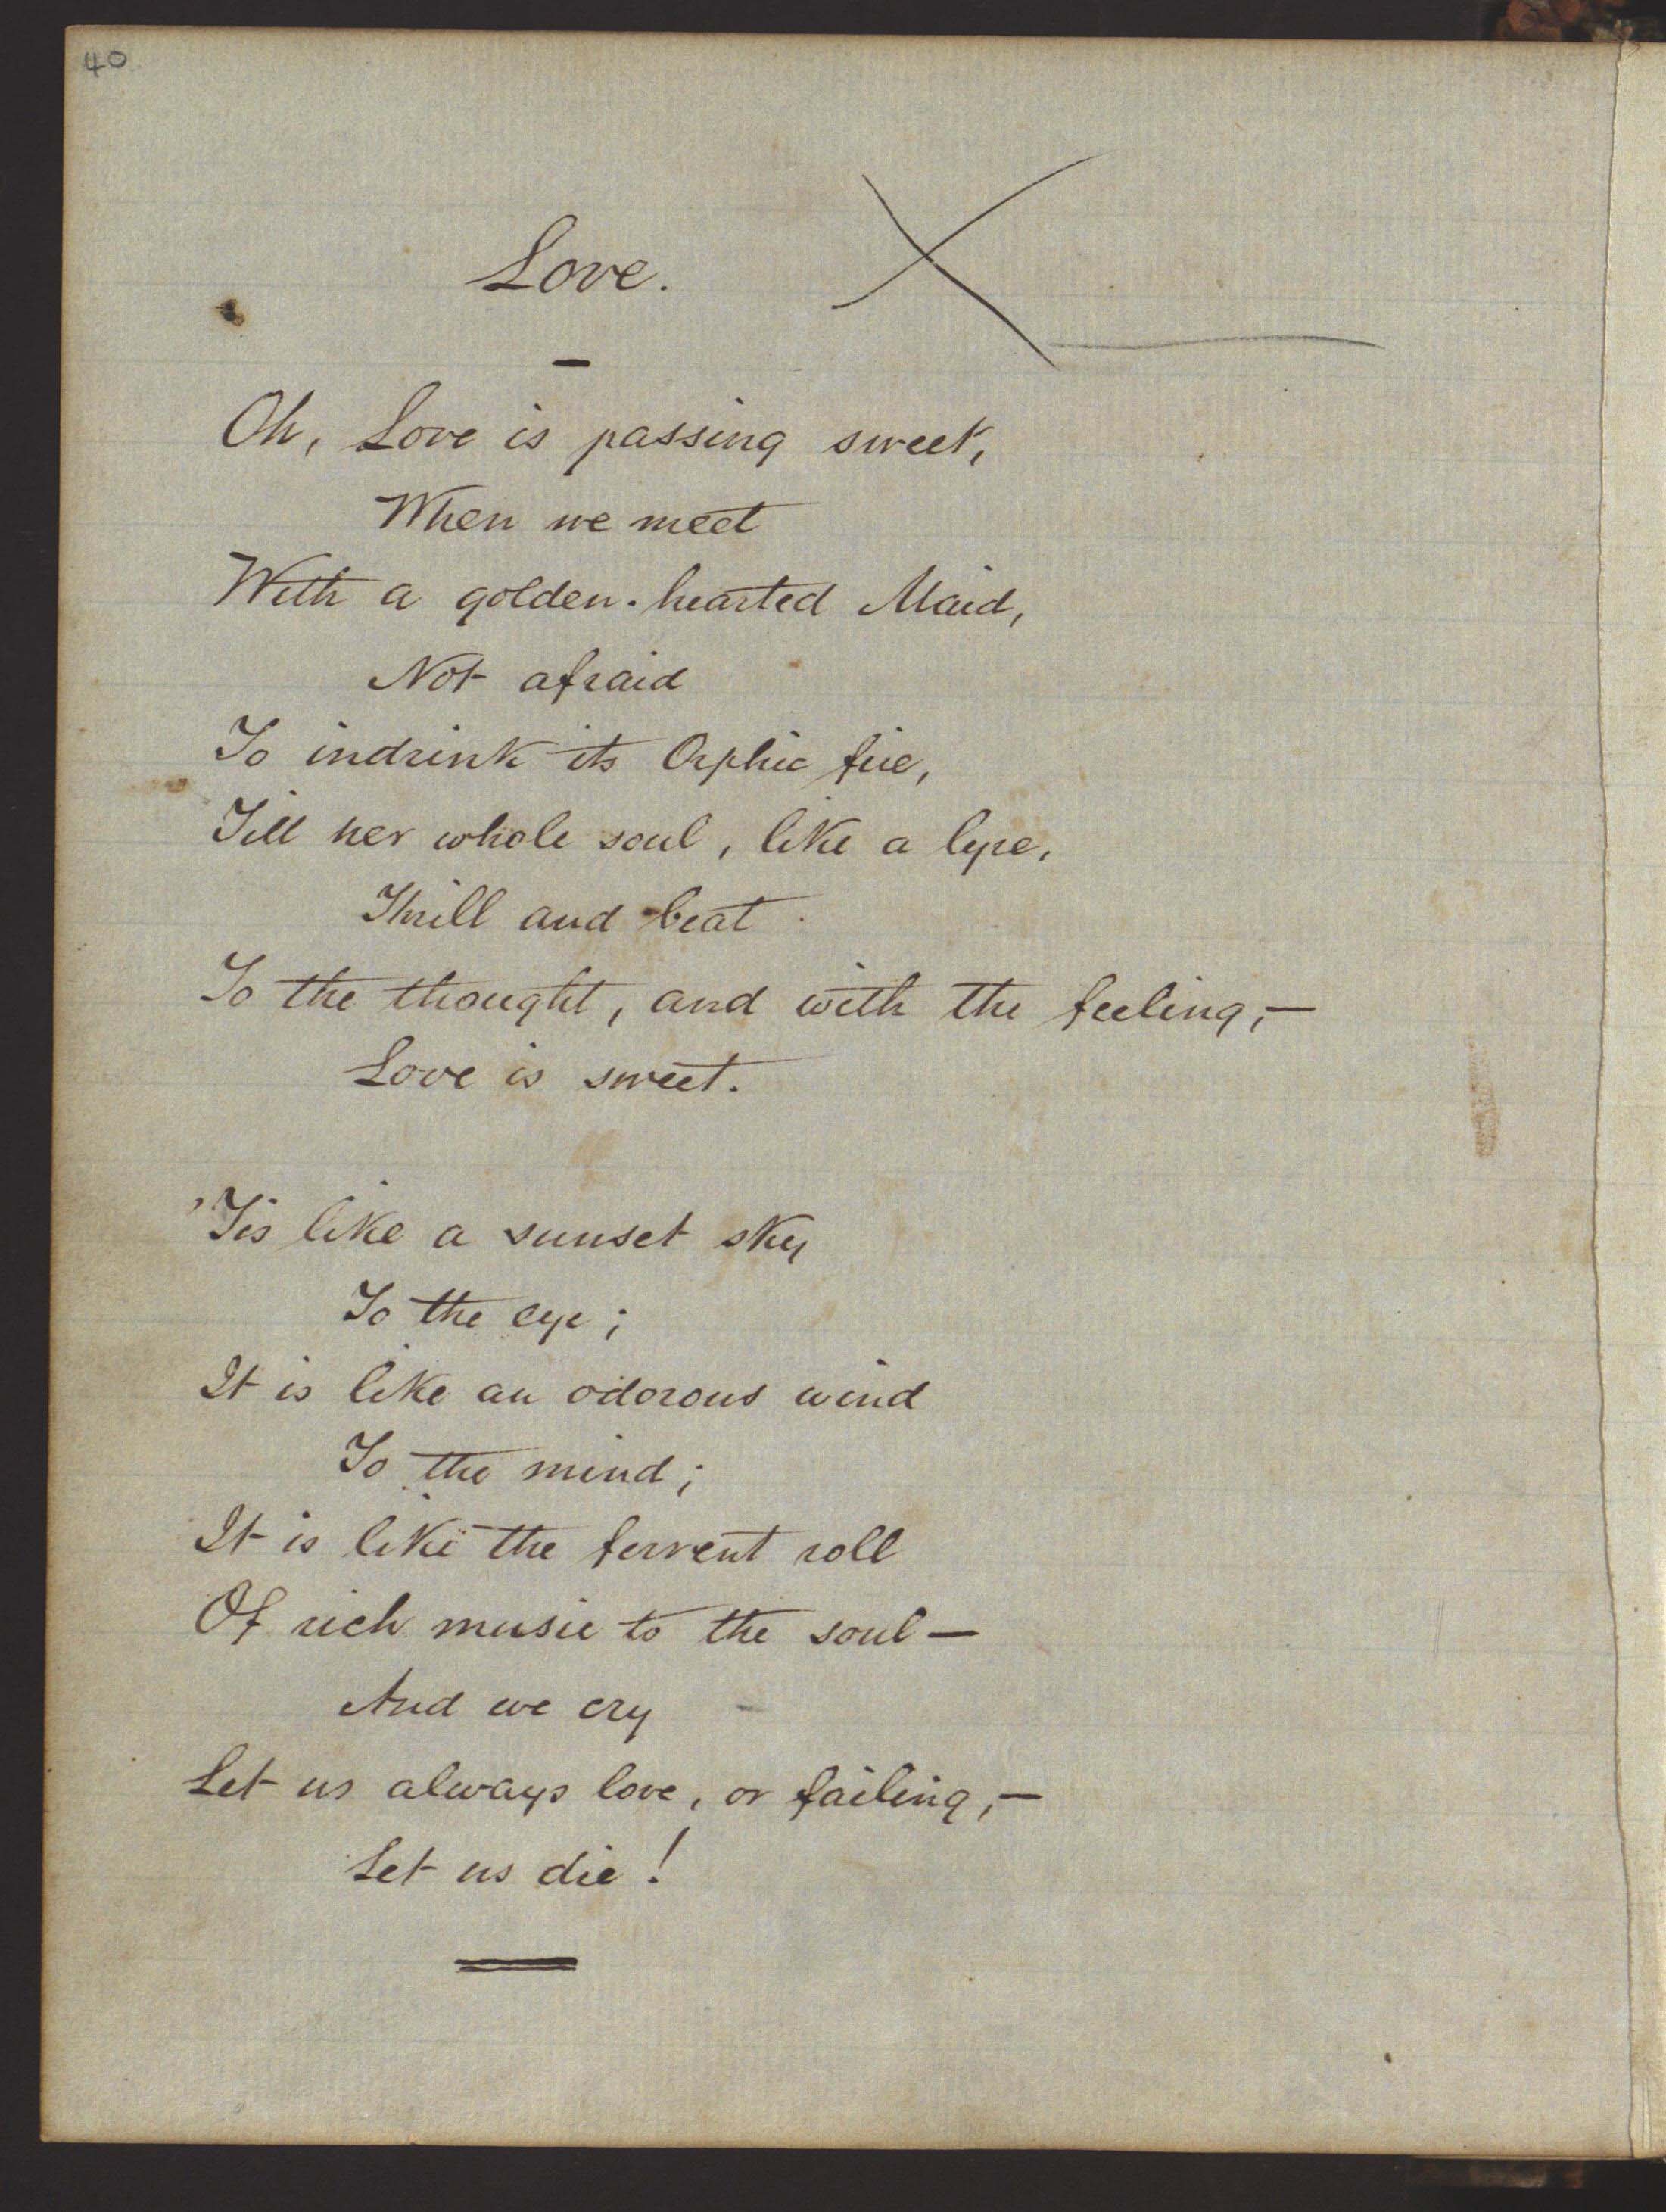 40
Love.
Oh, Love is passing sweet,
When we meet
With a golden-hearted Maid,
Not afraid
To indrink its Orphic fire,
Till her whole soul, like a lyre,
Thrill and beat
To the thought, and with the feeling,—
Love is sweet.
'Tis like a sunset sky
To the eye;
It is like an odorous wind
To the mind;
It is like the fervent roll
Of rich music to the soul—
And we cry
Let us always love, or failing,—
Let us die!